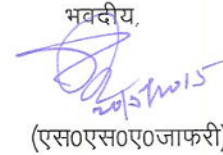 भवदीय,
20/5/2015
(एस0एस0ए0जाफरी)